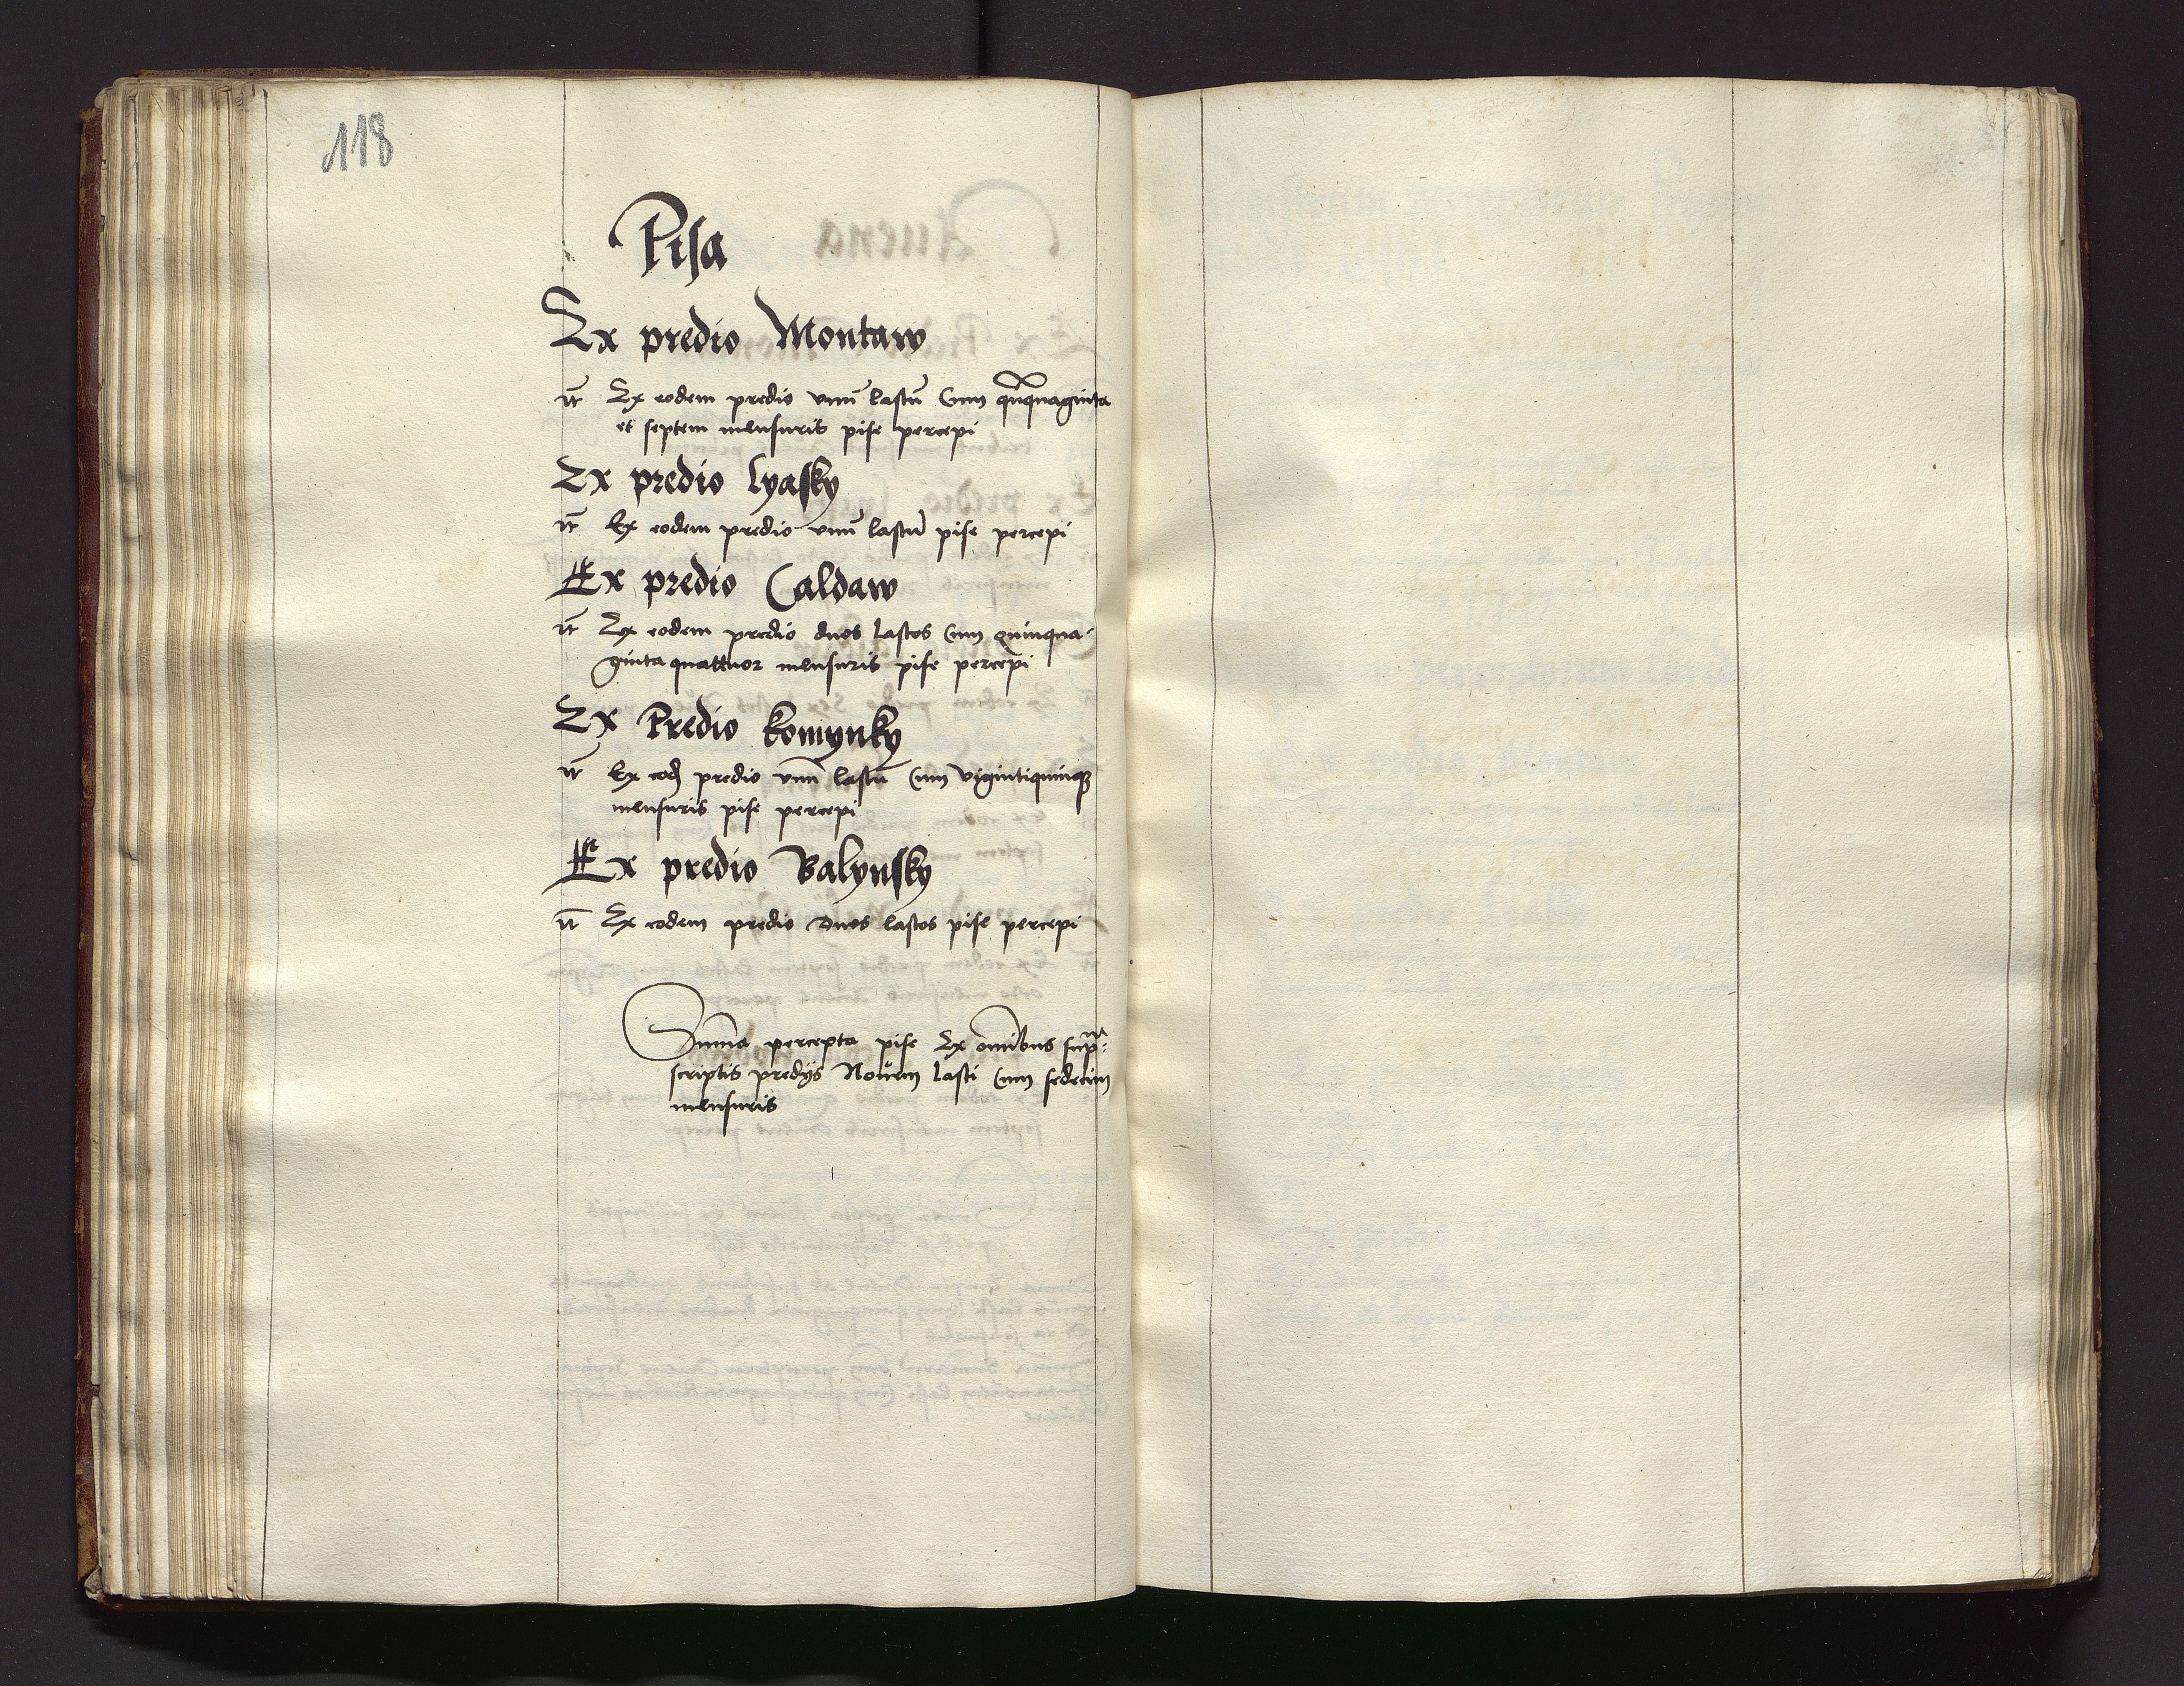 118
Pisa
Ex predio Montaw
It Ex eodem predio vnū lastū Cum quīquaginta
et septem mensuris pise percepi
Ex predio lyasky
It Ex eodem predio vnū lastū pise percepi
Ex predio Caldaw
It Ex eodem predio duos lastos Cum quinqua-
ginta quattuor mensuris pise percepi
Ex Predio komynky
It Ex eod predio vnū lastū Cum vigintiquinqꝫ
mensuris pise percepi
Ex predio Balynsky
It Ex eodem predio Duos lastos pise percepi
Suma percepta pise Ex omībus supra:
scriptis predijs Nouem lasti Cum sedecim
mensuris